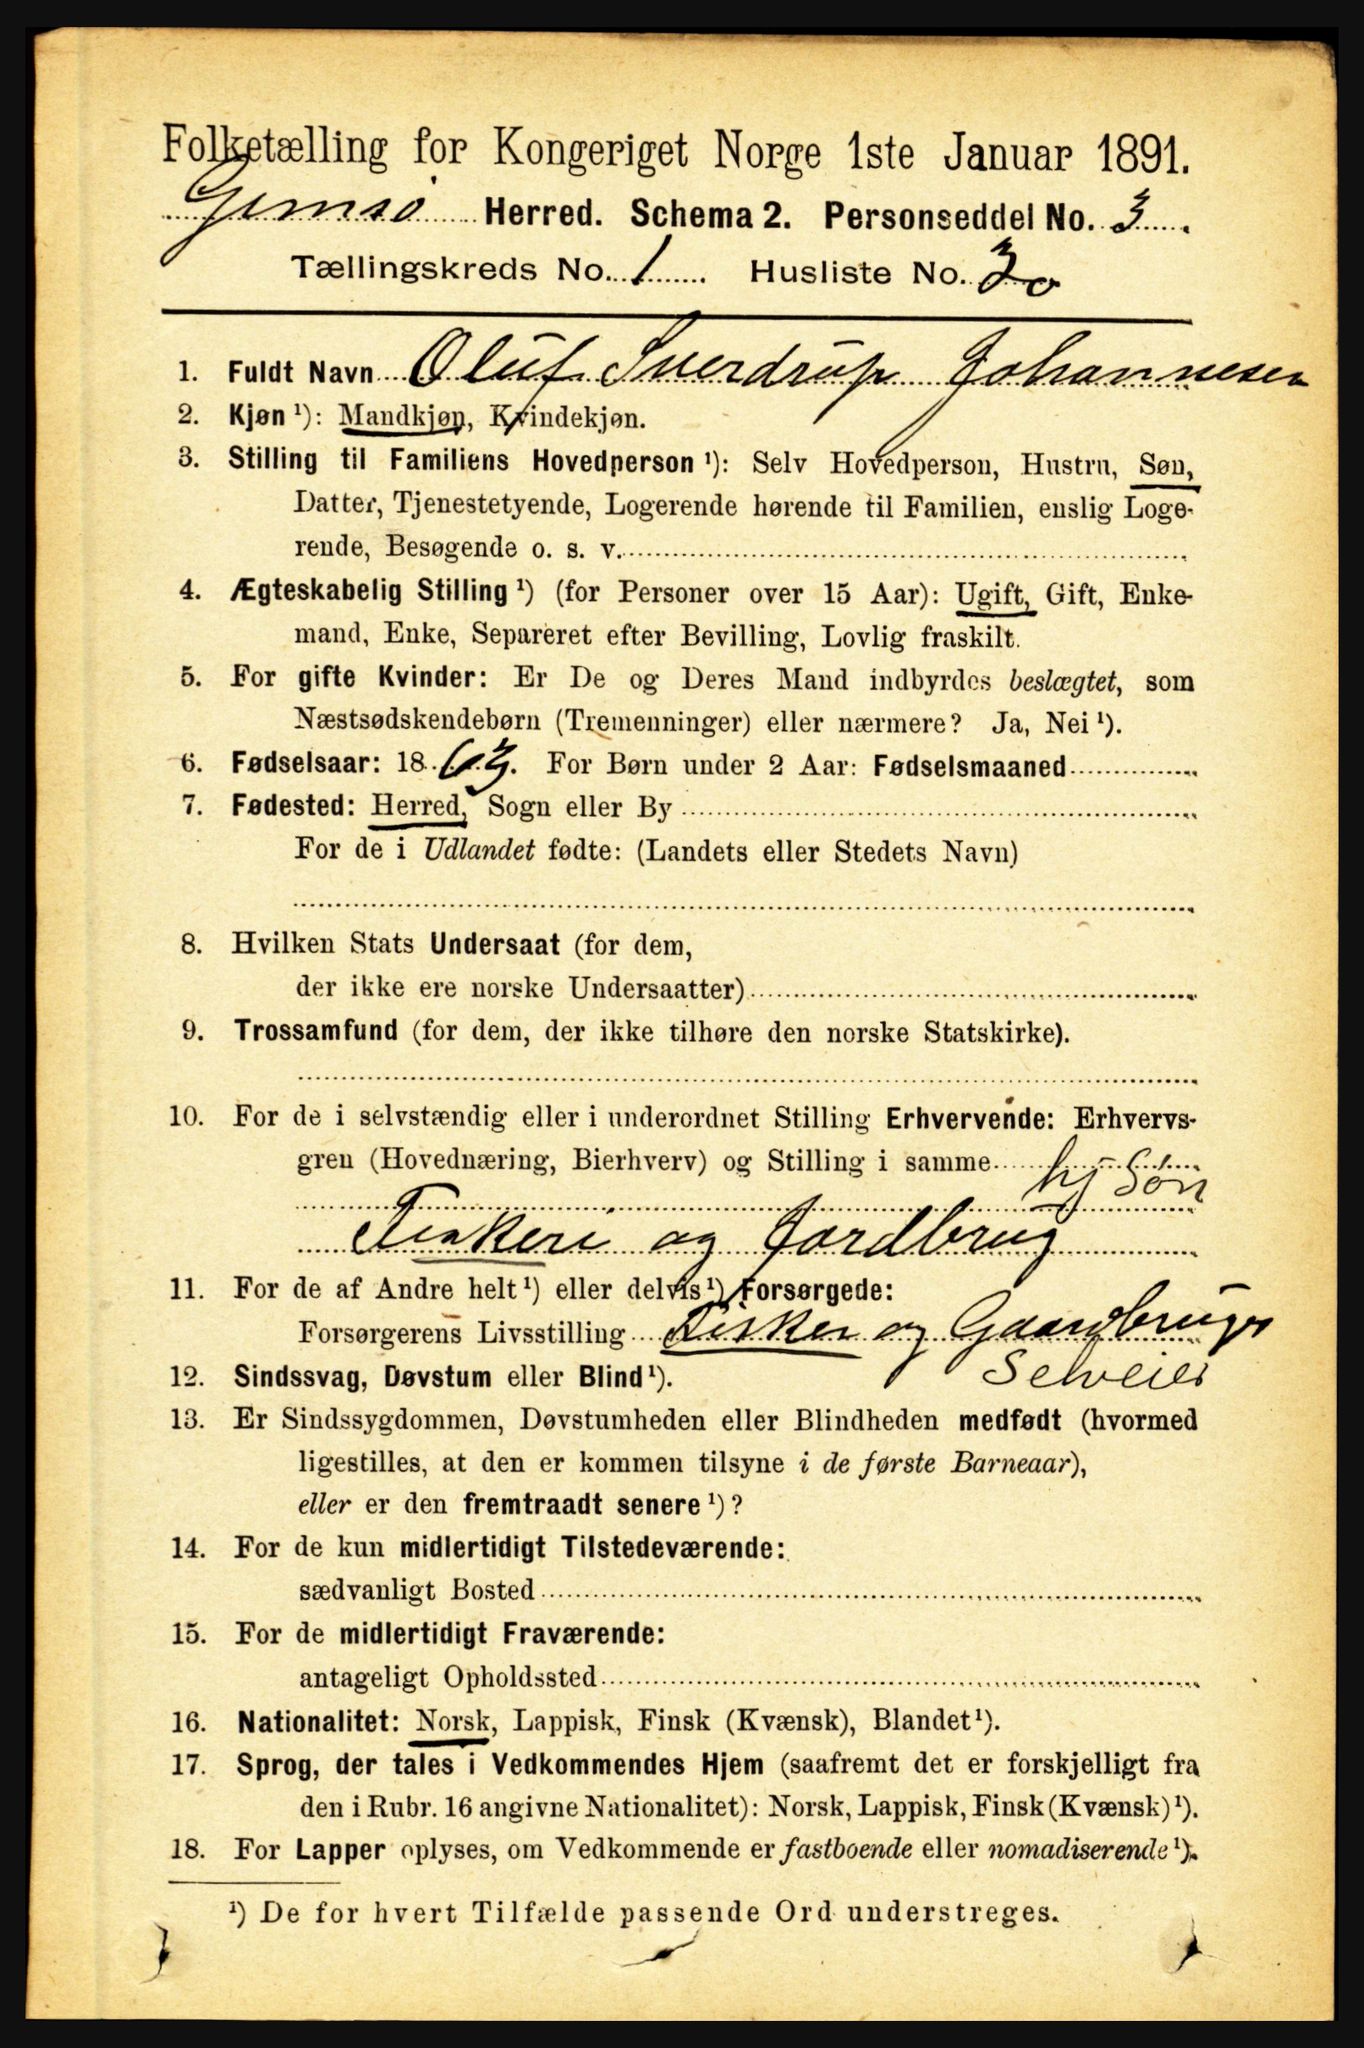 Folketælling for Kongeriget Norge 1ste Januar 1891.
Gimsø Herred. Schema 2. Personseddel No. 3
Tællingskreds No. 1 Husliste No. 30
1. Fuldt Navn Oluf Sverdrup Johannesen
2. Kjøn ¹): Mandkjøn, Kvindekjøn.
3. Stilling til Familiens Hovedperson ¹): Selv Hovedperson, Hustru, Søn,
Datter, Tjenestetyende, Logerende hørende til Familien, enslig Loge-
rende, Besøgende o. s. v.
4. Ægteskabelig Stilling ¹) (for Personer over 15 Aar): Ugift, Gift, Enke-
mand, Enke, Separeret efter Bevilling, Lovlig fraskilt.
5. For gifte Kvinder: Er De og Deres Mand indbyrdes beslægtet, som
Næstsødskendebørn (Tremenninger) eller nærmere? Ja, Nei ¹).
6. Fødselsaar: 1863. For Børn under 2 Aar: Fødselsmaaned
7. Fødested: Herred, Sogn eller By
For de i Udlandet fødte: (Landets eller Stedets Navn)
8. Hvilken Stats Undersaat (for dem,
der ikke ere norske Undersaatter)
9. Trossamfund (for dem, der ikke tilhøre den norske Statskirke).
10. For de i selvstændig eller i underordnet Stilling Erhvervende: Erhvervs-
gren (Hovednæring, Bierhverv) og Stilling i samme hj Søn
Fiskeri og Jordbrug
11. For de af Andre helt ¹) eller delvis ¹) Forsørgede:
Forsørgerens Livsstilling Fisker og Gaardbruger
Selveier
12. Sindssvag, Døvstum eller Blind ¹).
13. Er Sindssygdommen, Døvstumheden eller Blindheden medfødt (hvormed
ligestilles, at den er kommen tilsyne i de første Barneaar),
eller er den fremtraadt senere ¹)?
14. For de kun midlertidigt Tilstedeværende:
sædvanligt Bosted
15. For de midlertidigt Fraværende:
antageligt Opholdssted
16. Nationalitet: Norsk, Lappisk, Finsk (Kvænsk), Blandet ¹).
17. Sprog, der tales i Vedkommendes Hjem (saafremt det er forskjelligt fra
den i Rubr. 16 angivne Nationalitet): Norsk, Lappisk, Finsk (Kvænsk) ¹).
18. For Lapper oplyses, om Vedkommende er fastboende eller nomadiserende ¹).
¹) De for hvert Tilfælde passende Ord understreges.